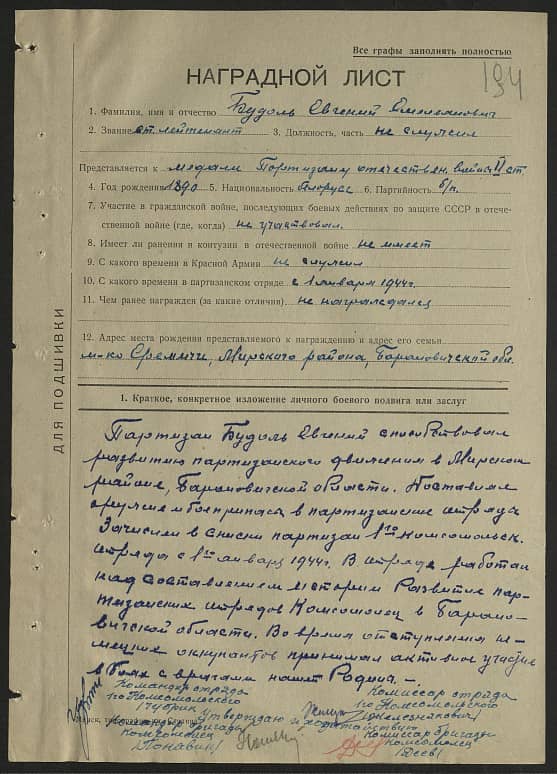 Все графы заполнять полностью
194
НАГРАДНОЙ ЛИСТ
1. Фамилия, имя и отчество Будоль Евгений Емельянович
2. Звание ст. лейтенант 3. Должность, часть не служил
Представляется к медали Партизану отечествен. войны II ст
4. Год рождения 1890 5. Национальность белорусс 6. Партийность б/п.
7. Участие в гражданской войне, последующих боевых действиях по защите СССР в отече-
ственной войне (где, когда) не участвовал.
8. Имеет ли ранения и контузии в отечественной войне не имеет
9. С какого времени в Красной Армии не служил
10. С какого времени в партизанском отряде с 1 января 1944 г.
11. Чем ранее награжден (за какие отличия) не награждался
12. Адрес места рождения представляемого к награждению и адрес его семьи
м-ко Еремичи, Мирского района, Барановичской обл.
ДЛЯ ПОДШИВКИ
1. Краткое, конкретное изложение личного боевого подвига или заслуг
Партизан Будоль Евгений способствовал
развитию партизанского движения в Мирском
районе, Барановичской области. Доставлял
оружие и боеприпасы в партизанские отряды
Зачислен в списки партизан 1го Комсомольск.
отряда с 1го января 1944 г. В отряде работал
над составлением истории Развития пар-
тизанских отрядов Комсомолец в Барано-
вичской области. Во время отступления не-
мецких оккупантов принимал активное участие
в боях с врагами нашей Родины.
Командир отряда Комиссар отряда
1го Комсомольского 1го Комсомольского
/Чубрик /Железняков/
Утверждаю и ходатайствую
Командир бригады Комиссар бригады
Комсомолец Комсомолец
/Понавин/ /Деев/